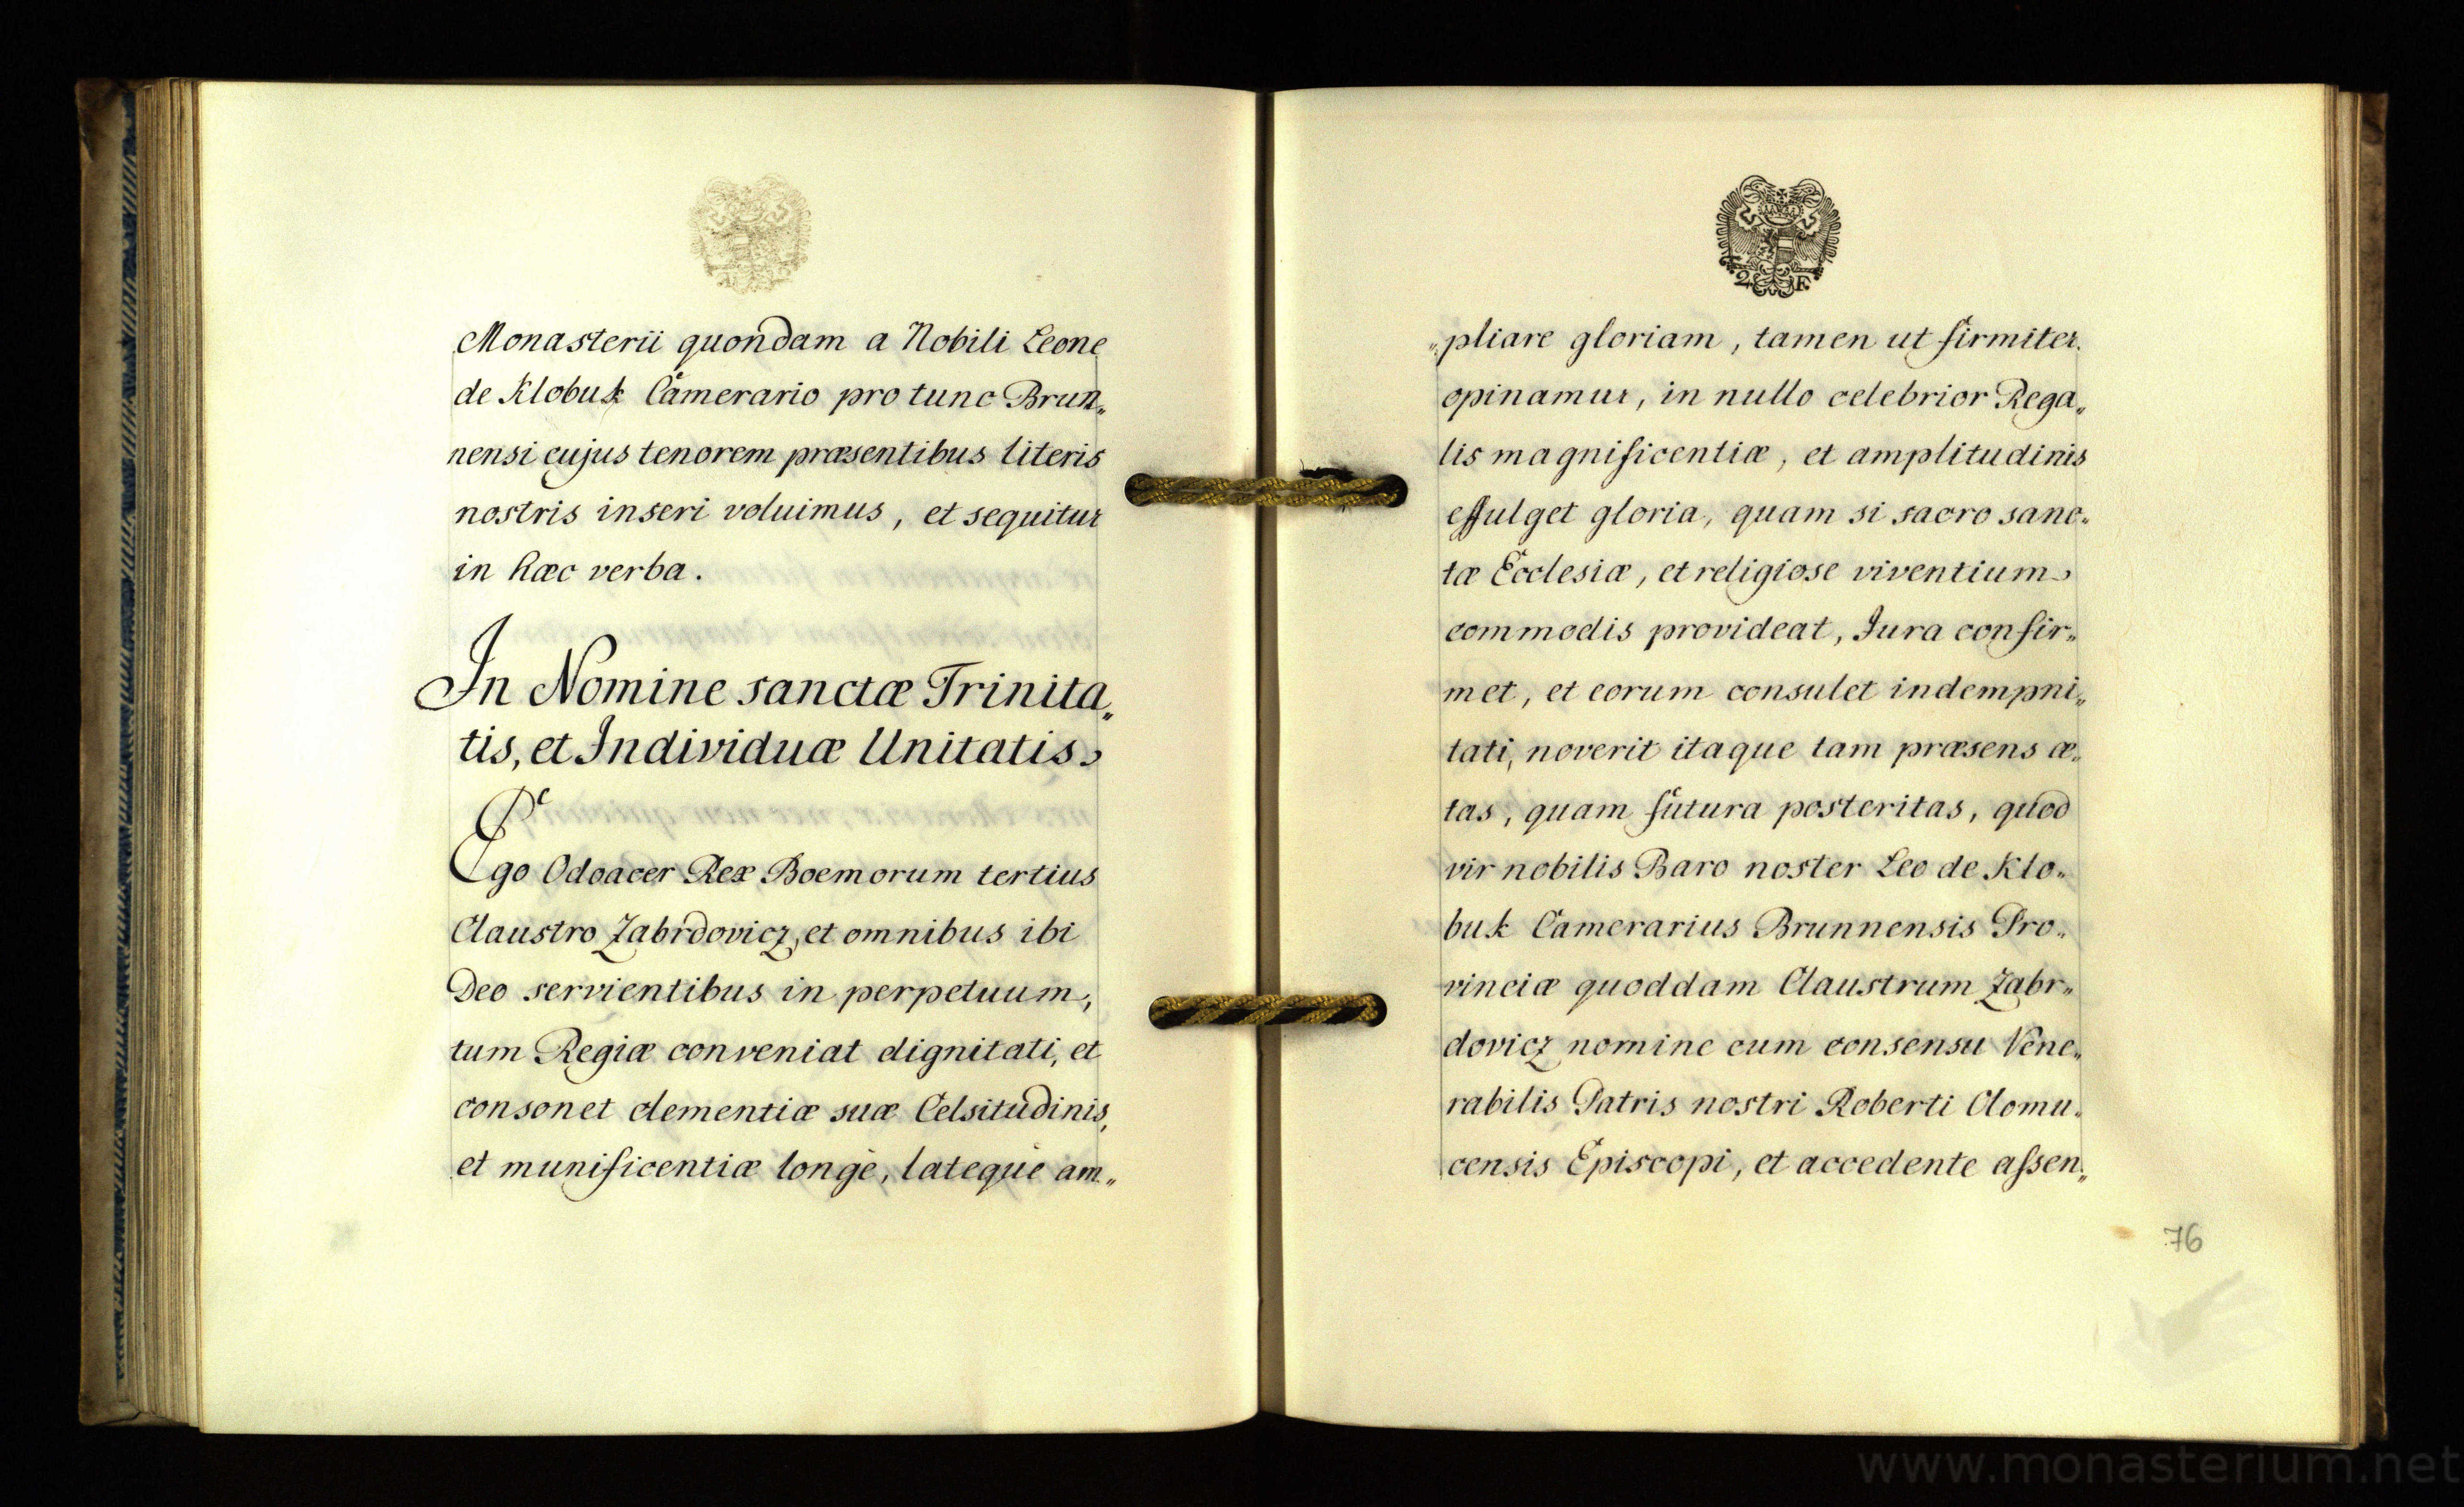 Monasterii quondam a Nobili Leone
de Klobuk Camerario pro tunc Brun„
nensi cujus tenorem præsentibus literis
nostris inseri voluimus, et sequitur
in hæc verba.
In Nomine sanctæ Trinita„
tis, et Individuæ Unitatis.
Ego Odoacer Rex Boemorum tertius
Claustro Zabrdovicz, et omnibus ibi
Deo servientibus in perpetuum,
tum Regiæ conveniat dignitati, et
consonet clementiæ suæ Celsitudinis,
et munificentiæ longè, latequè am„
2 F
„pliare gloriam, tamen ut firmiter
opinamur, in nullo celebrior Rega„
lis magnificentiæ, et amplitudinis
effulget gloria, quam si sacro sanc„
tæ Ecclesiæ, et religiose viventium
commodis provideat, Jura confir„
met, et eorum consulet indempni„
tati, noverit itaque tam præsens æ„
tas, quam futura posteritas, quod
vir nobilis Baro noster Leo de Klo„
buk Camerarius Brunnensis Pro„
vinciæ quoddam Claustrum Zabr„
dovicz nomine cum consensu Vene„
rabilis Patris nostri Roberti Olomu„
censis Episcopi, et accedente assen„
76
www.monasterium.net